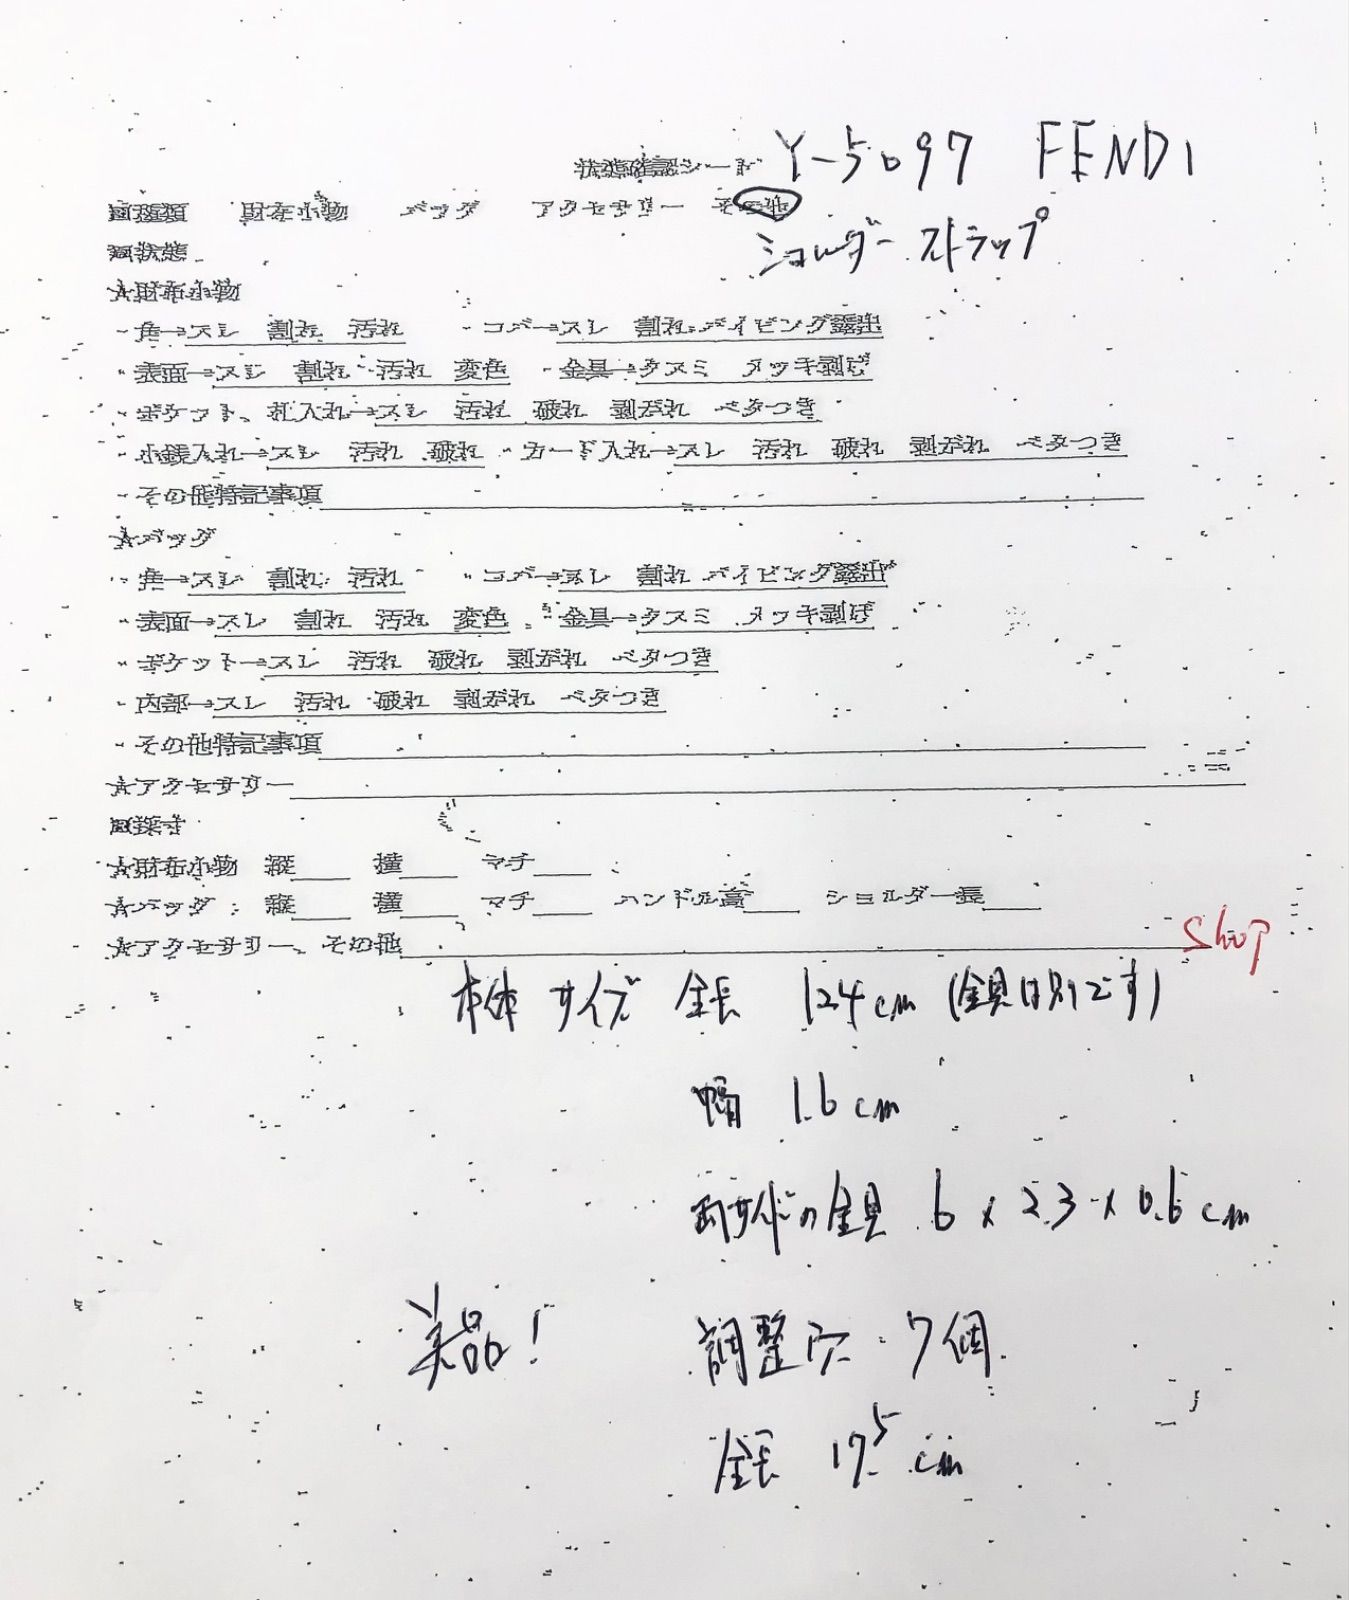 状態確認シート Y-5097 FENDI
■種類 財布小物 バッグ アクセサリー その他
ショルダーストラップ
■状態
★財布小物
・角→スレ 割れ 汚れ ・コバ→スレ 割れ パイピング露出
・表面→スレ 割れ 汚れ 変色 ・金具→クスミ メッキ剥げ
・ポケット、札入れ→スレ 汚れ 破れ 剥がれ ベタつき
・小銭入れ→スレ 汚れ 破れ ・カード入れ→スレ 汚れ 破れ 剥がれ ベタつき
・その他特記事項
★バッグ
・角→スレ 割れ 汚れ ・コバ→スレ 割れ パイピング露出
・表面→スレ 割れ 汚れ 変色 ・金具→クスミ メッキ剥げ
・ポケット→スレ 汚れ 破れ 剥がれ ベタつき
・内部→スレ 汚れ 破れ 剥がれ ベタつき
・その他特記事項
★アクセサリー
■採寸
★財布小物 縦 横 マチ
★バッグ 縦 横 マチ ハンドル高 ショルダー長
★アクセサリー、その他 Shop
本体サイズ 全長 124cm (金具は別です)
幅 1.6cm
両サイドの金具 6 x 2.3 x 0.6cm
美品! 調整穴 7個
全長 17.5cm